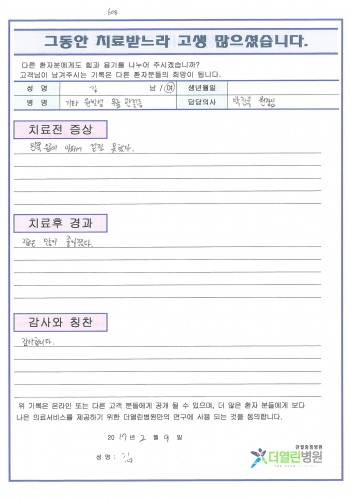 608
그동안 치료받느라 고생 많으셨습니다.
다른 환자분에게도 힘과 용기를 나누어 주시겠습니까?
고객님이 남겨주시는 기록은 다른 환자분들의 희망이 됩니다.
성 명 김 남 / 여 생년월일
병 명 기타 원발성 무릎 관절증 담당의사
치료전 증상
걷질 못했다.
치료후 경과
많이 좋아졌다.
감사와 칭찬
감사합니다.
위 기록은 온라인 또는 다른 고객 분들에게 공개 될 수 있으며, 더 많은 환자 분들에게 보다
나은 의료서비스를 제공하기 위한 더열린병원만의 연구에 사용 되는 것을 동의합니다.
2017년 2 월 9 일
성 명 : 김
관절중점병원
더열린병원